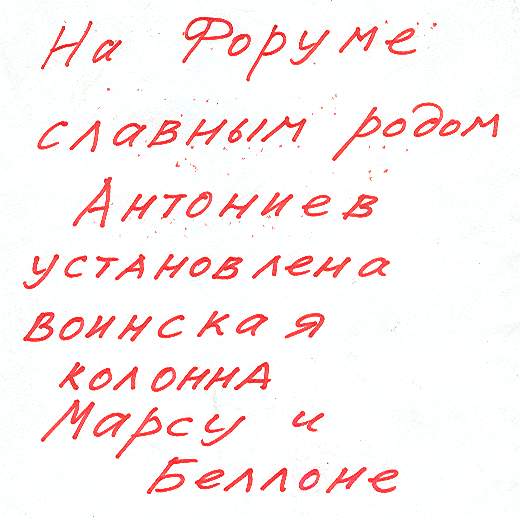 На Форуме
славным родом
Антониев
установлена
воинская
колонна
Марсу и
Беллоне